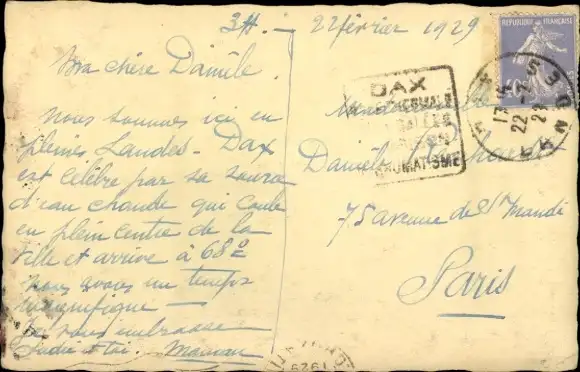 22 février 1929
Ma chère Danièle.
nous sommes ici en
pleines Landes - Dax
est célèbre par sa source
d'eau chaude qui coule
en plein centre de la
ville et arrive à 68°
nous avons un temps
magnifique —
Je vous embrasse
et toi. Maman
RÉPUBLIQUE FRANÇAISE
40
DAX
THERMALE
DAX
22 -2
29
Danièle
75 avenue de St Mandé
Paris